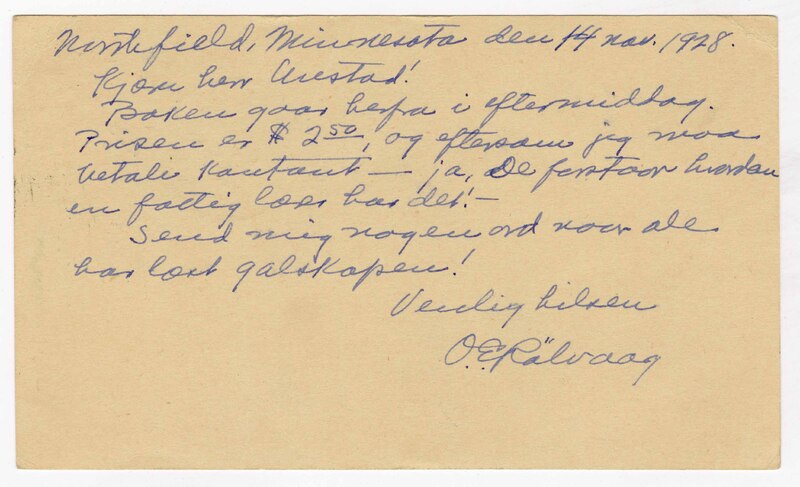 Northfield, Minnesota den 14 nov. 1928.
Kjære herr Anestad!
Boken gaar herfra i eftermiddag.
Prisen er $ 2 50, og eftersom jeg maa
betale kontant — ja, De forstaar hvordan
en fattig lærer har det! —
Send mig nogen ord naar De
har læst galskapen!
Venlig hilsen
O.E. Rölvaag